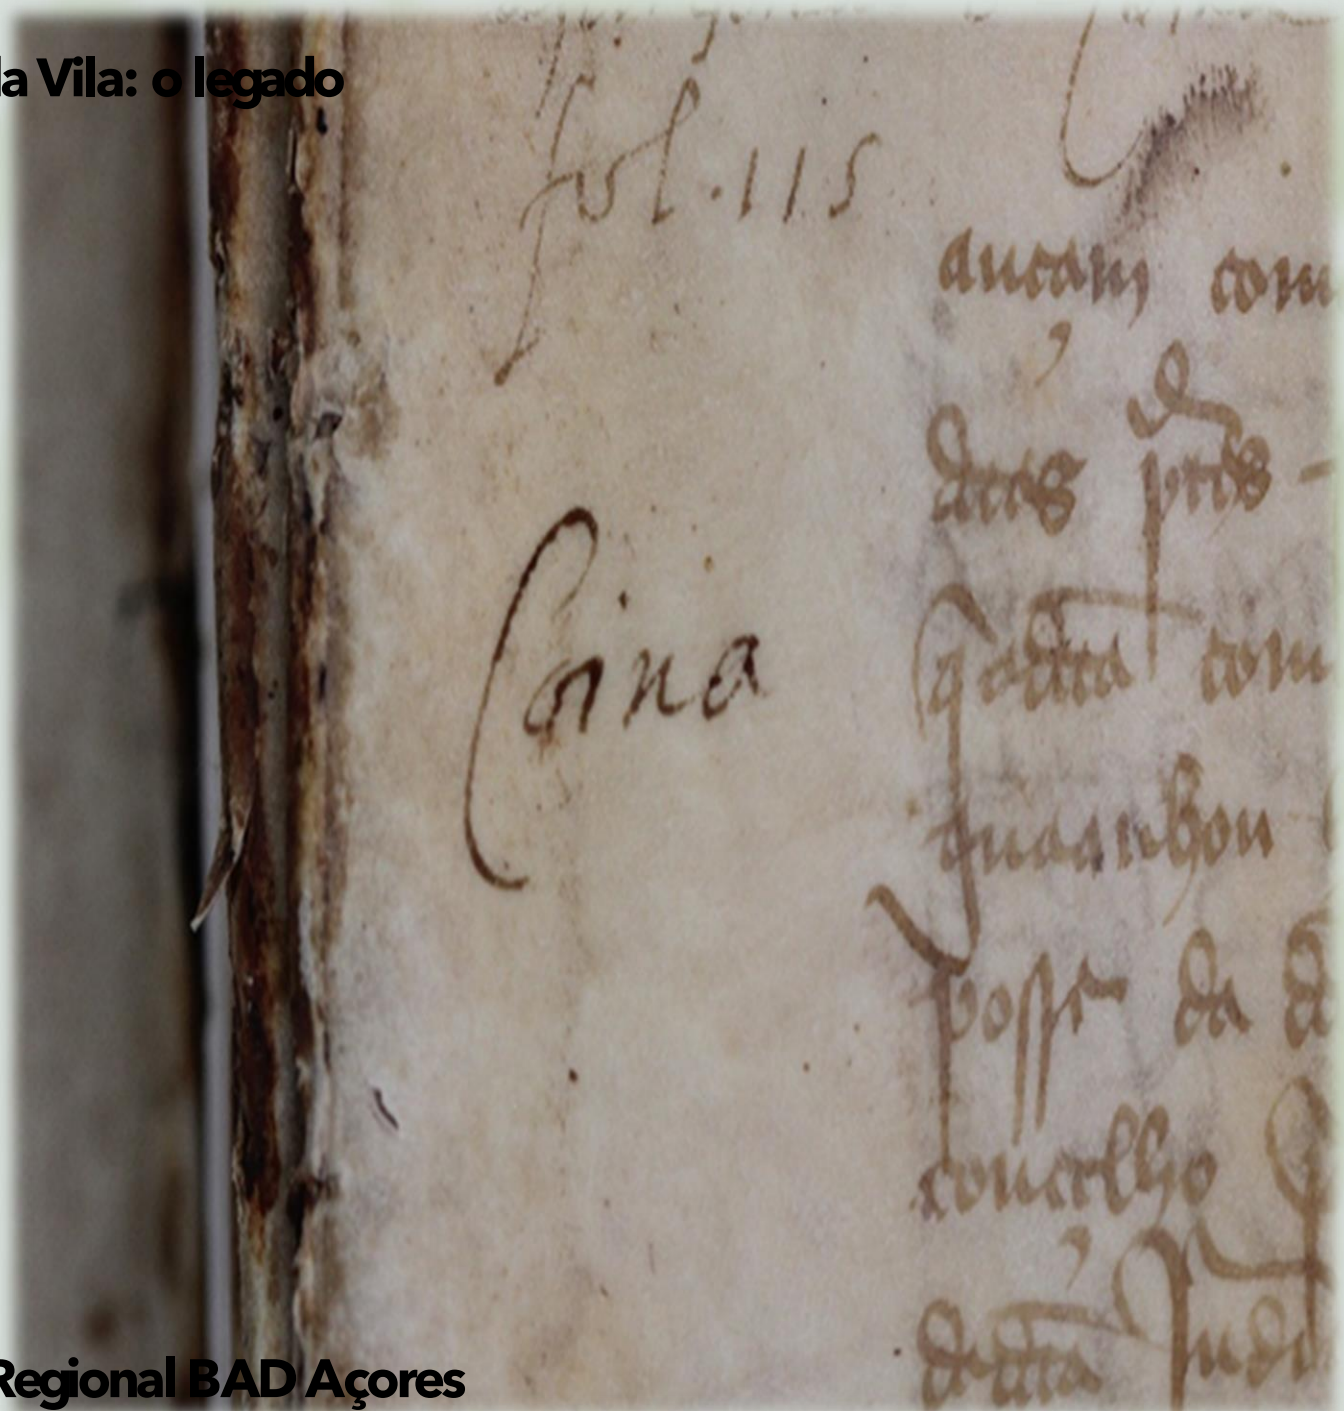 la Vila: o legado
fol. 115
Coina
auçam com
dctes ptes
q a dcta com
guaanhou
posse da d
concelho
da dcta Jud
Regional BAD Açores